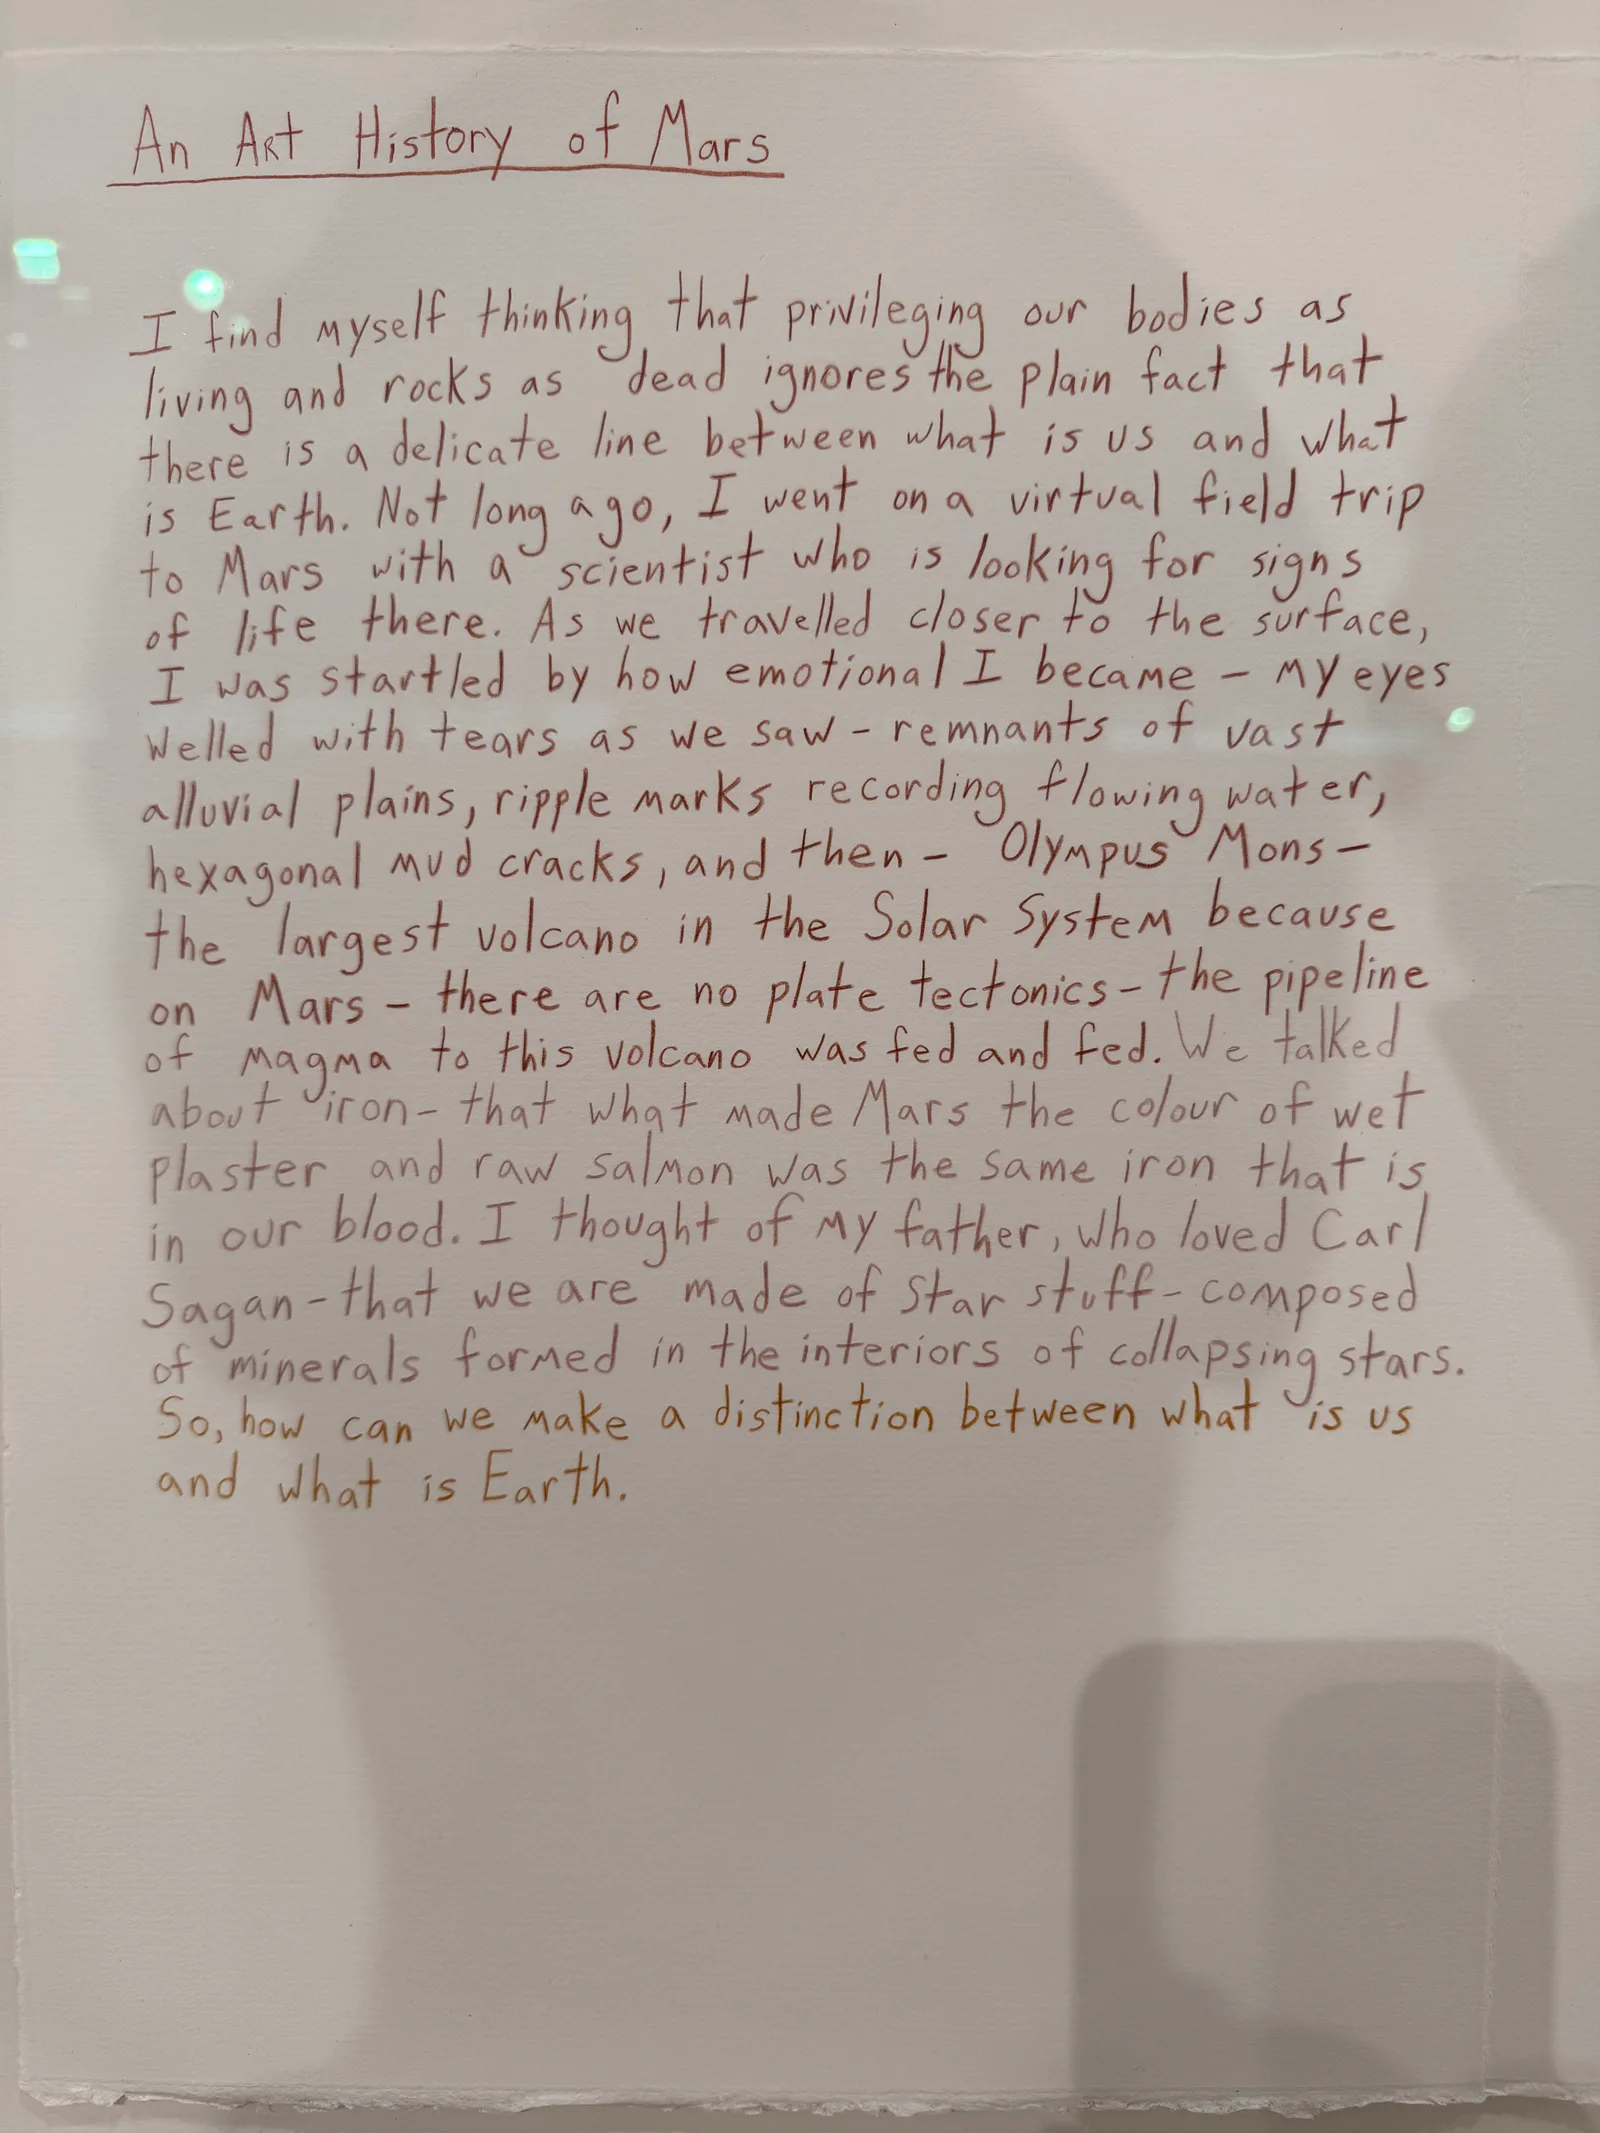 An Art History of Mars
I find myself thinking that privileging our bodies as
living and rocks as dead ignores the plain fact that
there is a delicate line between what is us and what
is Earth. Not long ago, I went on a virtual field trip
to Mars with a scientist who is looking for signs
of life there. As we travelled closer to the surface,
I was startled by how emotional I became – my eyes
welled with tears as we saw – remnants of vast
alluvial plains, ripple marks recording flowing water,
hexagonal mud cracks, and then – Olympus Mons –
the largest volcano in the Solar System because
on Mars – there are no plate tectonics – the pipeline
of magma to this volcano was fed and fed. We talked
about iron – that what made Mars the colour of wet
plaster and raw salmon was the same iron that is
in our blood. I thought of my father, who loved Carl
Sagan – that we are made of star stuff – composed
of minerals formed in the interiors of collapsing stars.
So, how can we make a distinction between what is us
and what is Earth.